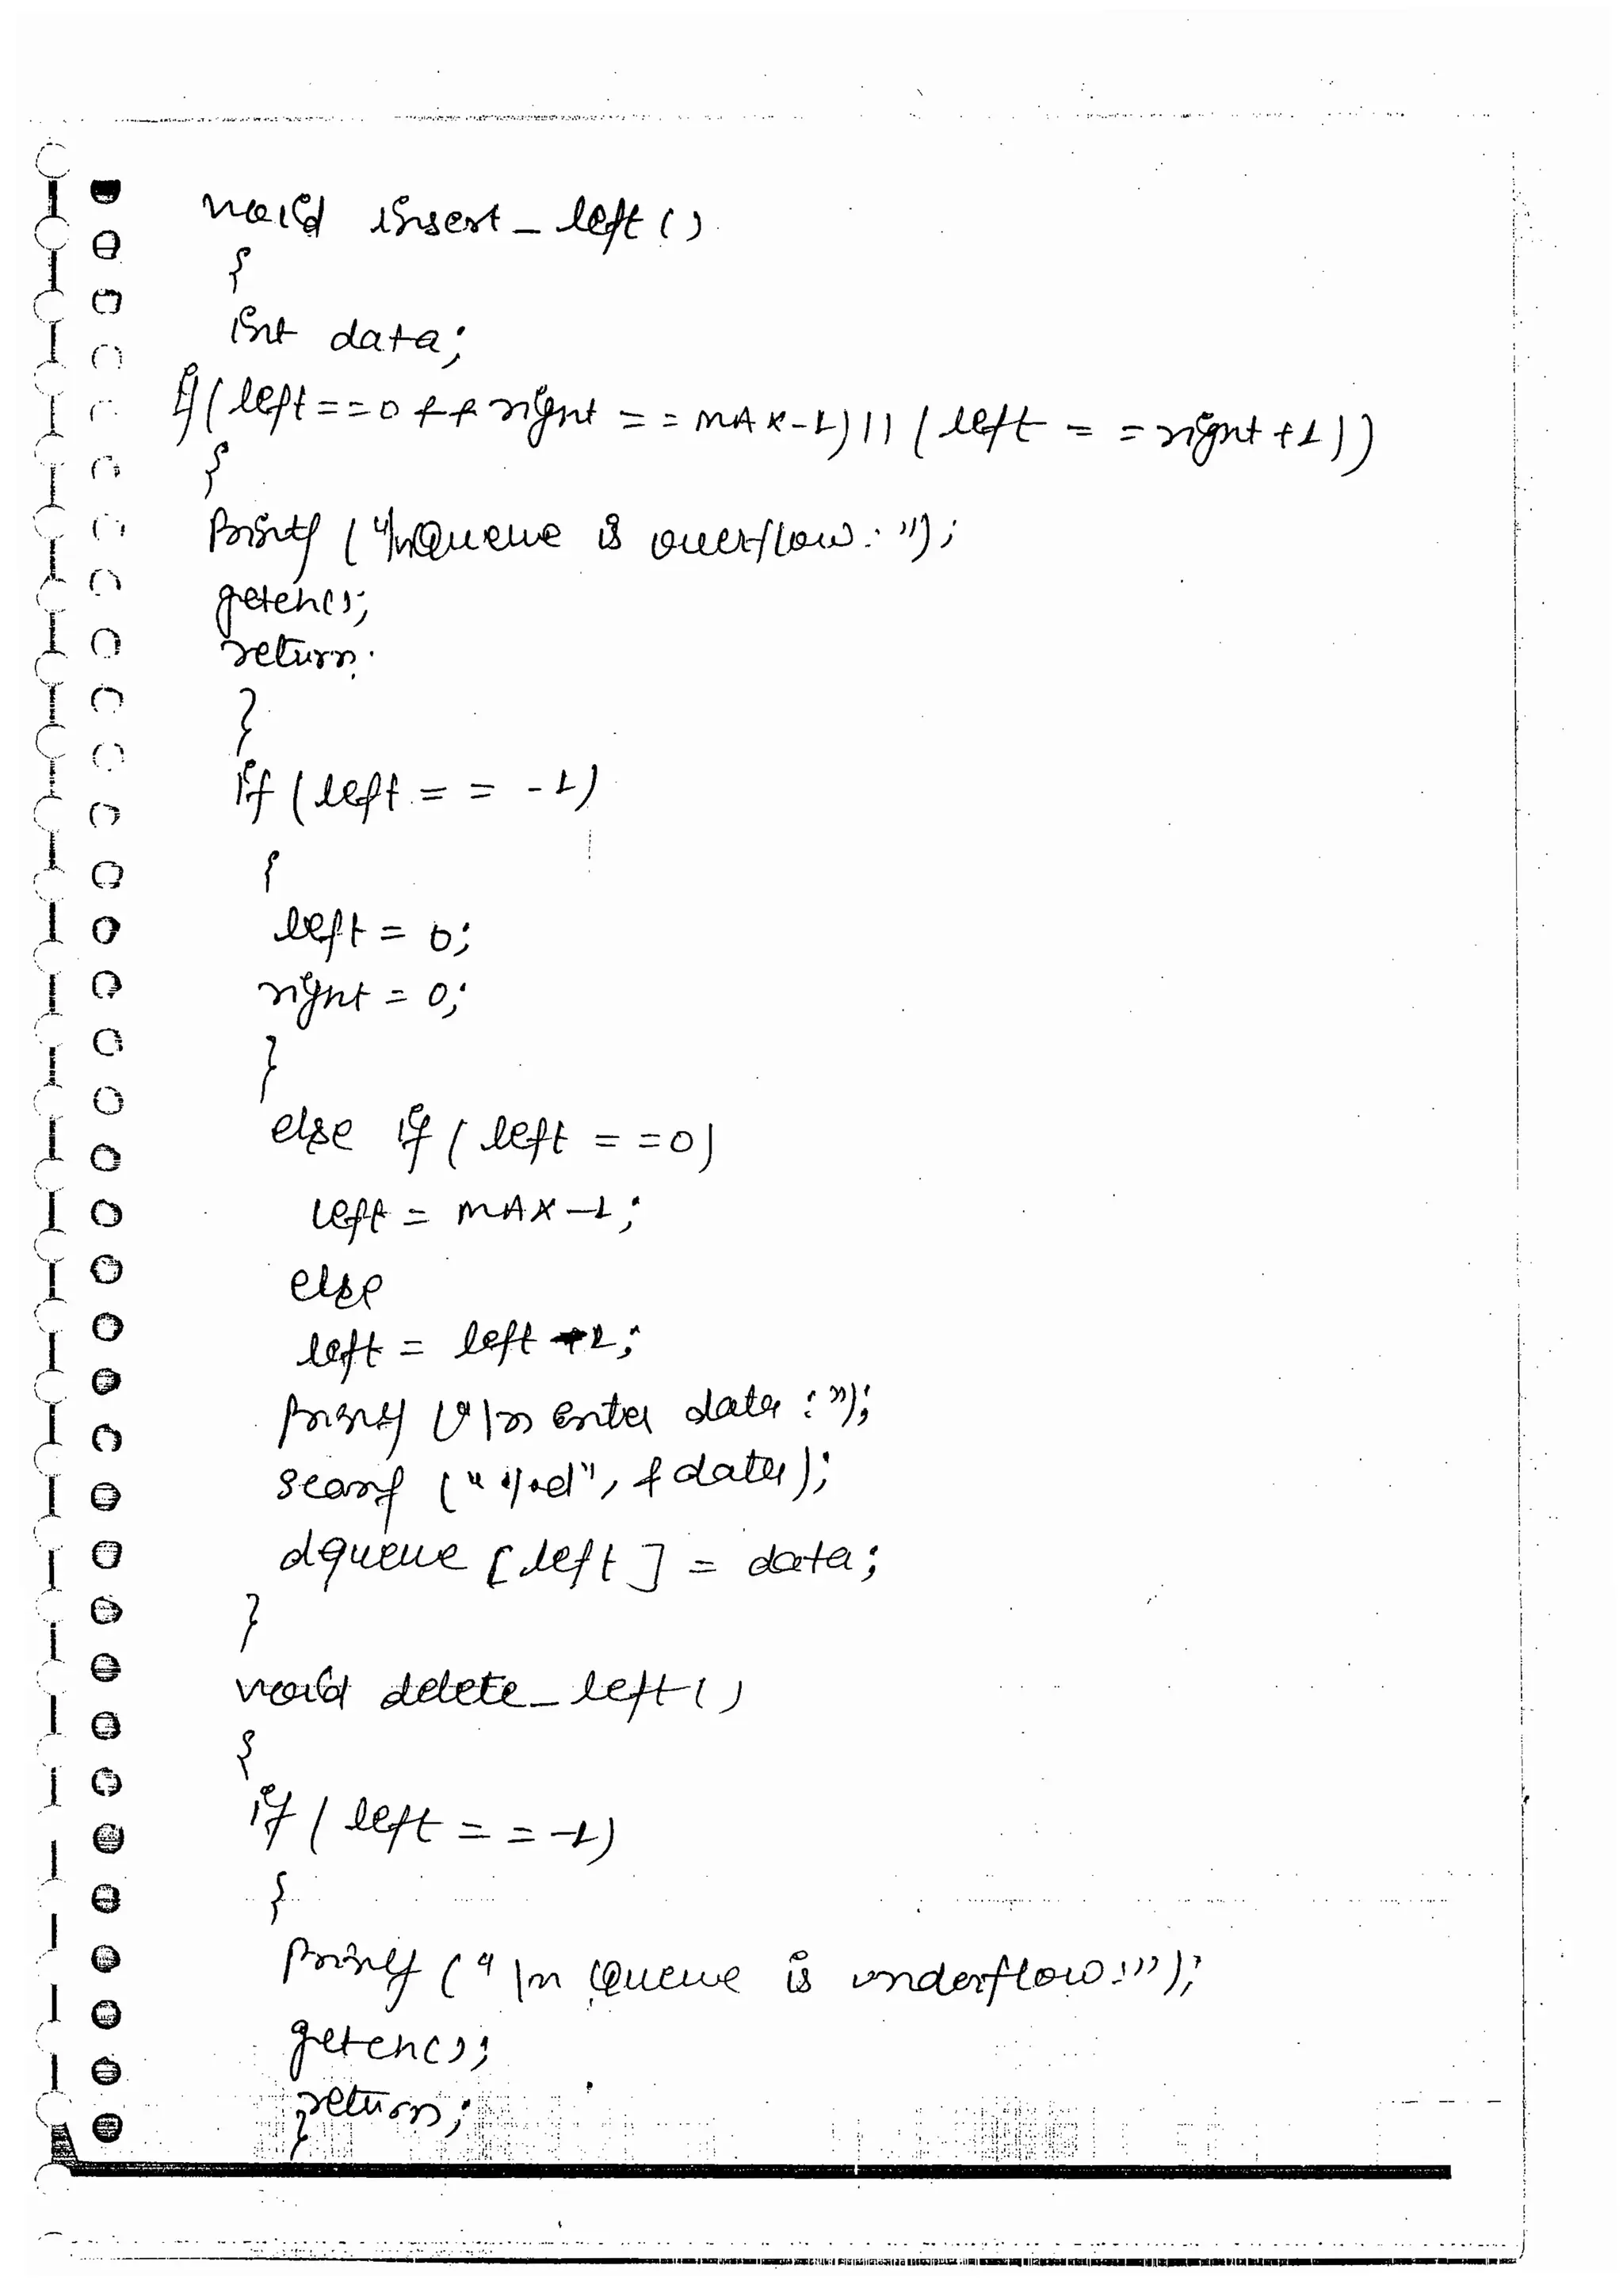 void insert_left()
{
int data;
if(left==0 && right==MAX-1)||(left==right+1))
{
printf("\nQueue is overflow:");
getch();
return;
}
if(left==-1)
{
left=0;
right=0;
}
else if(left==0)
left=MAX-1;
else
left=left-1;
printf("\n Enter data:");
scanf("%d",&data);
dqueue[left]=data;
}
void delete_left()
{
if(left==-1)
{
printf("\n Queue is underflow:");
getch();
return;
}